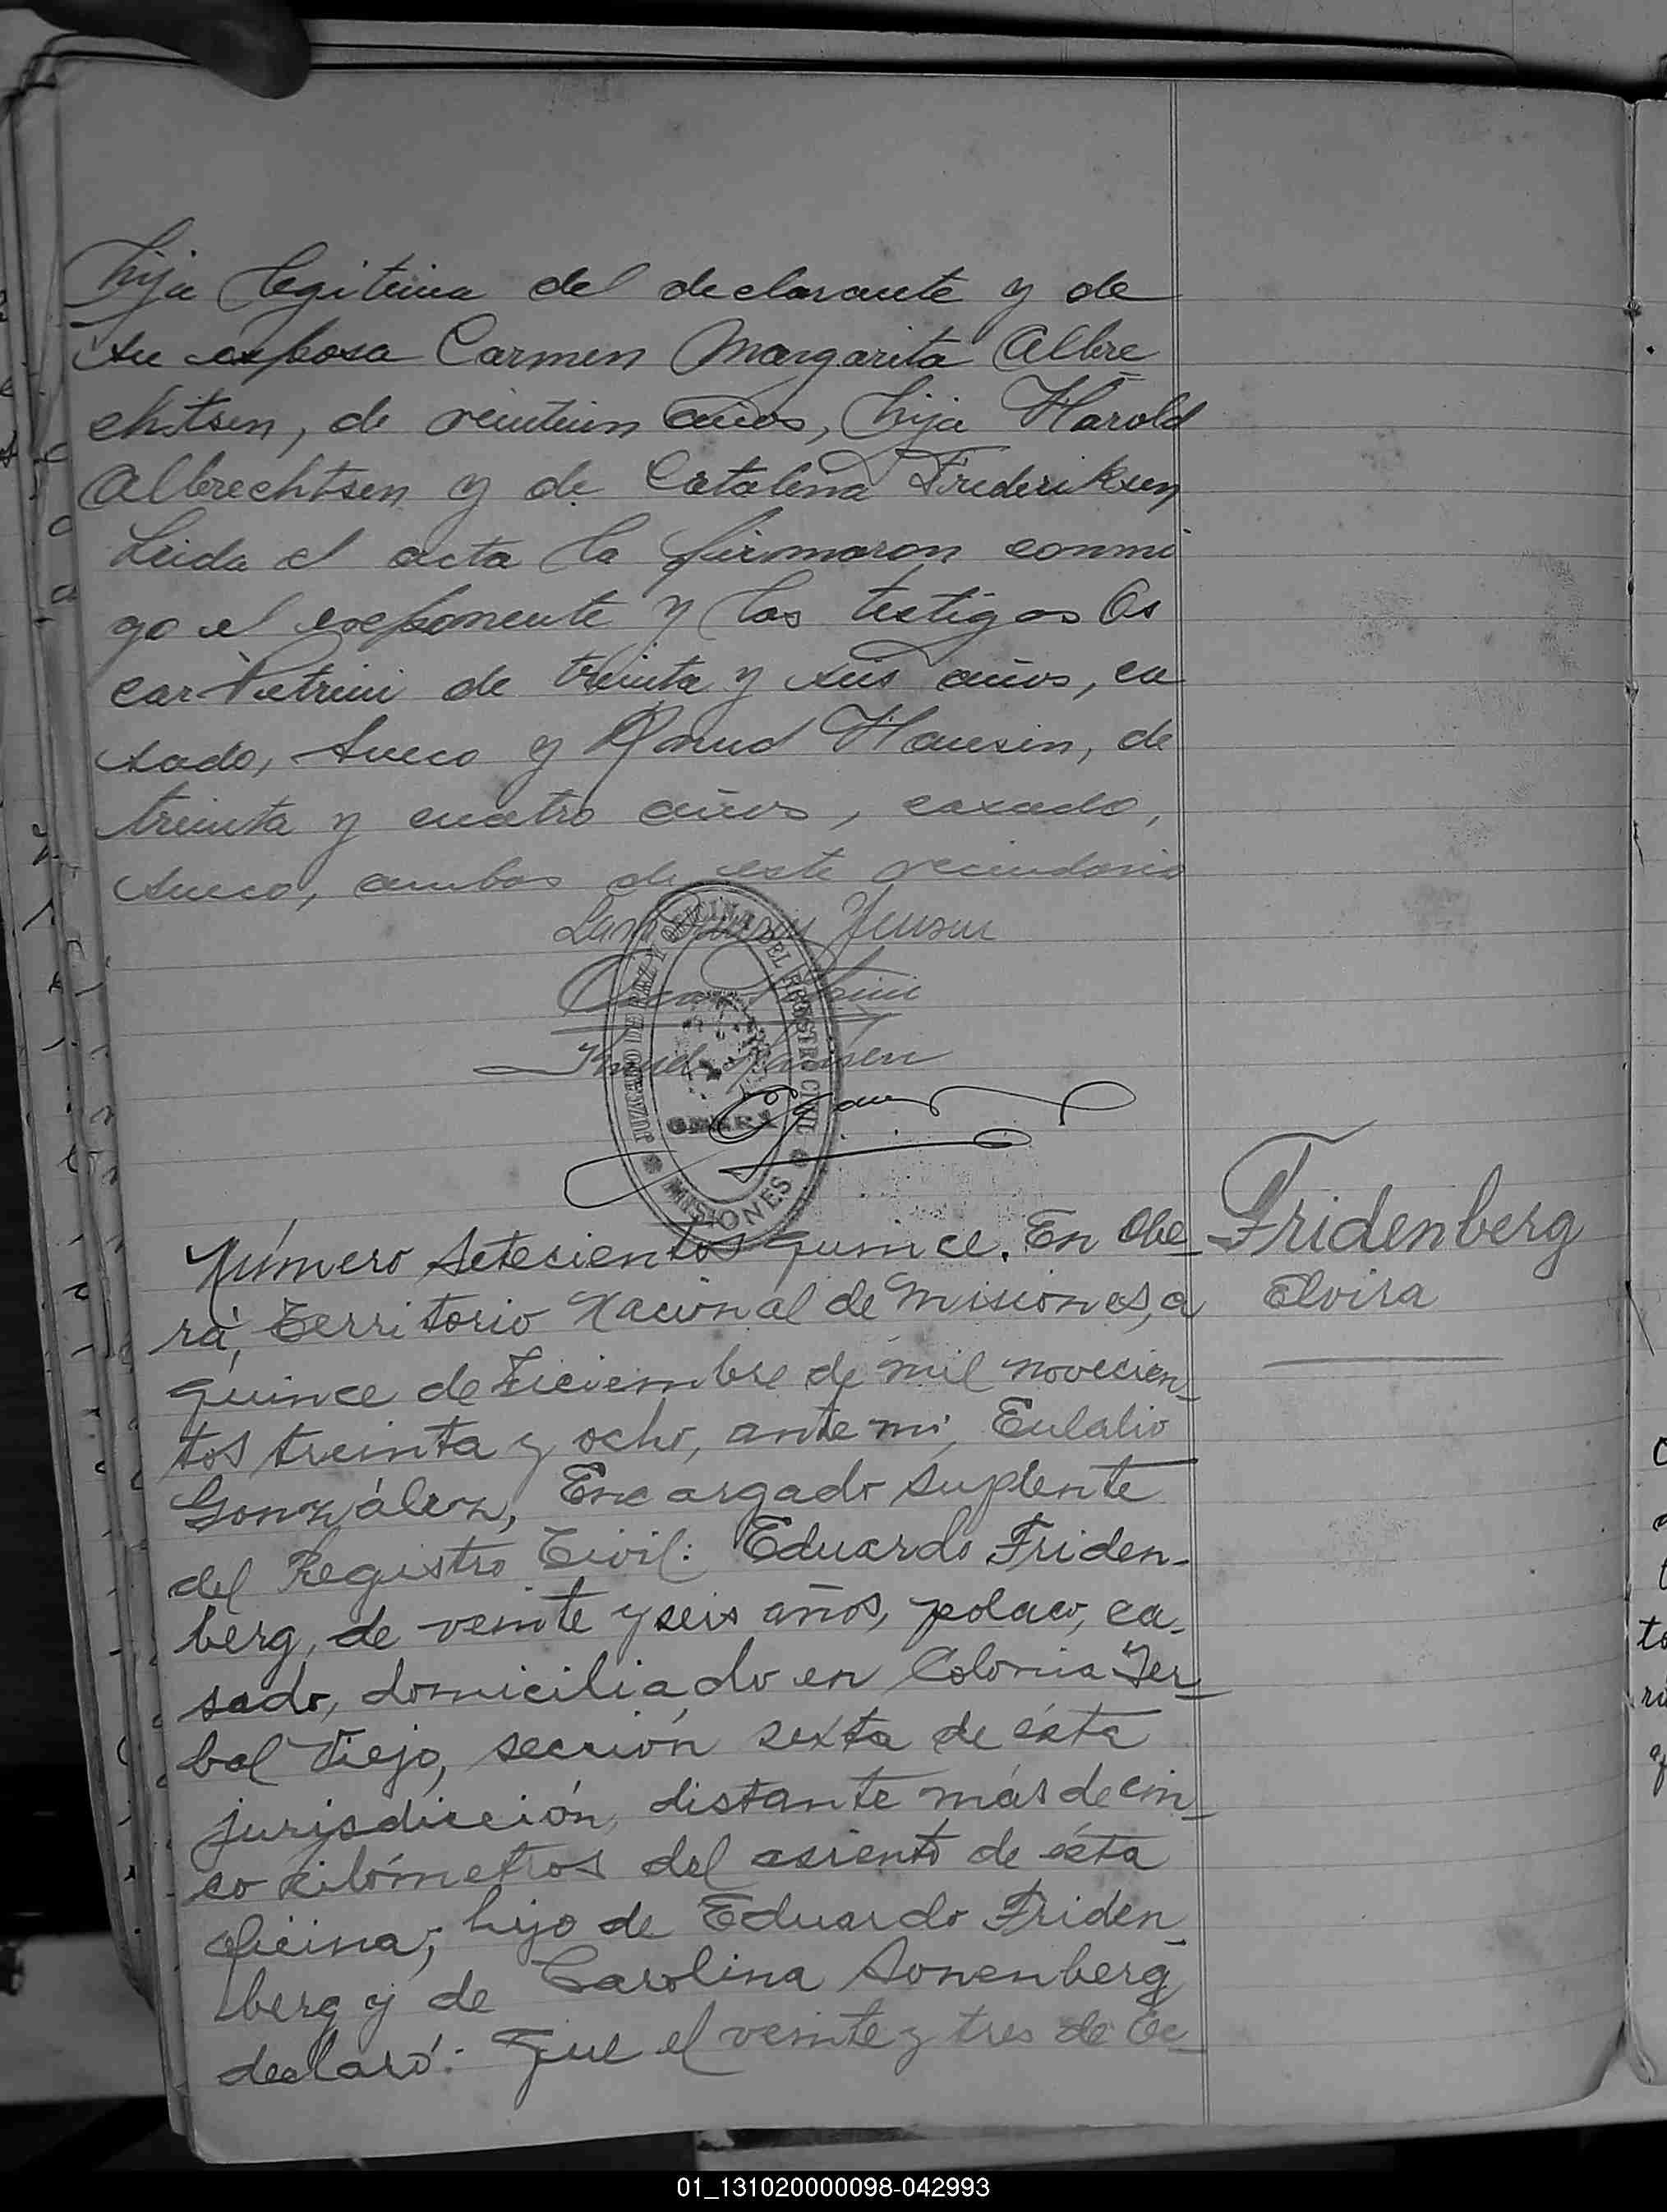 hija legitima del declarante y de
su esposa Carmen Margarita Albre
chtsen, de veintiun años, hija Harold
Albrechtsen y de Catalina Frederiksen
Leida el acta la firmaron conmi
go el exponente y los testigos Os
car Petrini de treinta y seis años, ca
sado, sueco y Knud Hansen, de
treinta y cuatro años, casado,
sueco, ambos de este vecindario
Jensen
Knud Hansen
JUZGADO DE PAZ Y OFICINA DEL REGISTRO CIVIL
OBERA
MISIONES
Número setecientos quince. En Obe-
rá, Territorio Nacional de Misiones, a
quince de Diciembre de mil novecien-
tos treinta y ocho, ante mí, Eulalio
González, Encargado suplente
del Registro Civil: Eduardo Friden-
berg, de veinte y seis años, polaco, ca-
sado, domiciliado en Colonia Yer-
bal Viejo, sección sexta de ésta
jurisdicción, distante más de cin-
co kilómetros del asiento de ésta
oficina; hijo de Eduardo Friden-
berg y de Carolina Sonenberg
declaró: Que el veinte y tres de Oc-
Fridenberg
Elvira
01_131020000098-042993